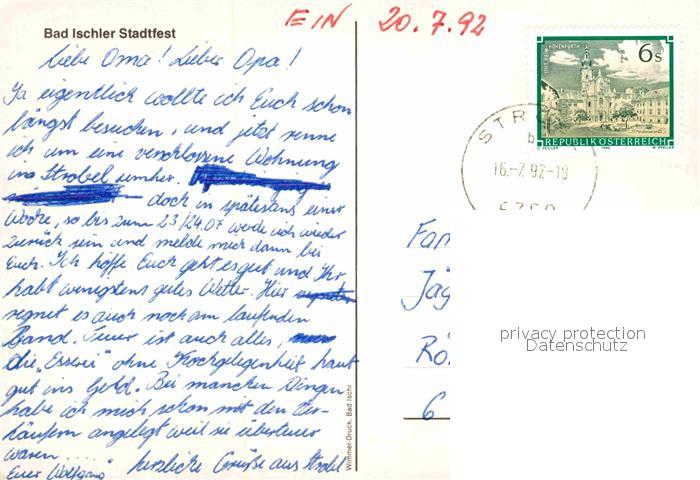 Bad Ischler Stadtfest
EIN 20.7.92
Liebe Oma! Lieber Opa!
Ja eigentlich wollte ich Euch schon
längst besuchen, und jetzt renne
ich um eine verschlossene Wohnung
in Strobel umher.
doch in spätestens einer
Woche, so bis zum 23/24.07 werde ich wieder
zurück sein und melde mich dann bei
Euch. Ich hoffe Euch geht es gut und Ihr
habt wenigstens gutes Wetter. Hier
regnet es auch noch am laufenden
Band. Teuer ist auch alles,
die "Esserei" ohne Kochgelegenheit haut
gut ins Geld. Bei manchen Dingen
habe ich mich schon mit den Ver-
käufern angelegt weil sie überteuer
waren ....
Euer Wolfgang herzliche Grüße aus Strobl
Wimmer-Druck, Bad Ischl
6 s
REPUBLIK ÖSTERREICH
STRO
b
16.-7.92-18
5350
Fam
Jäg
Rö
6
privacy protection
Datenschutz